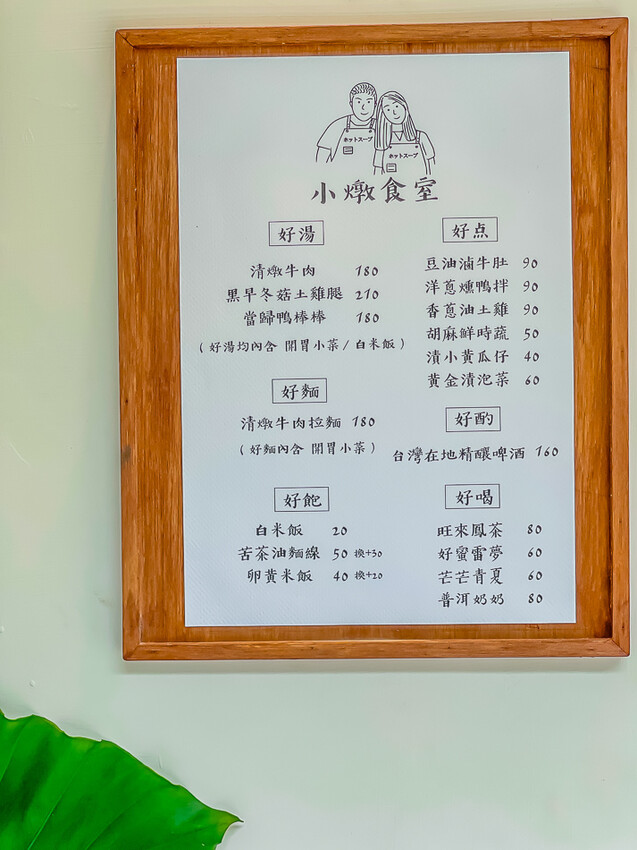 ホットスープ
ホットスープ
小燉食室
好湯
清燉牛肉 180
黑早冬菇土雞腿 210
當歸鴨棒棒 180
(好湯均內含 開胃小菜/白米飯)
好麵
清燉牛肉拉麵 180
(好麵內含 開胃小菜)
好飽
白米飯 20
苦茶油麵線 50 換+30
卵黃米飯 40 換+20
好点
豆油滷牛肚 90
洋蔥燻鴨拌 90
香蔥油土雞 90
胡麻鮮時蔬 50
漬小黃瓜仔 40
黃金漬泡菜 60
好酌
台灣在地精釀啤酒 160
好喝
旺來鳳茶 80
好蜜雷夢 60
芒芒青夏 60
普洱奶奶 80